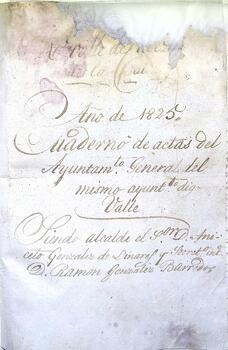 Año de 1825.
Cuaderno de actas del
Ayuntam.to General del
mismo ayunt.to dig
Valle
Siendo alcalde el S.or D. Ani-
ceto Gonzalez de Linares y Secret.o int.
D. Ramon Gonzalez Barredo